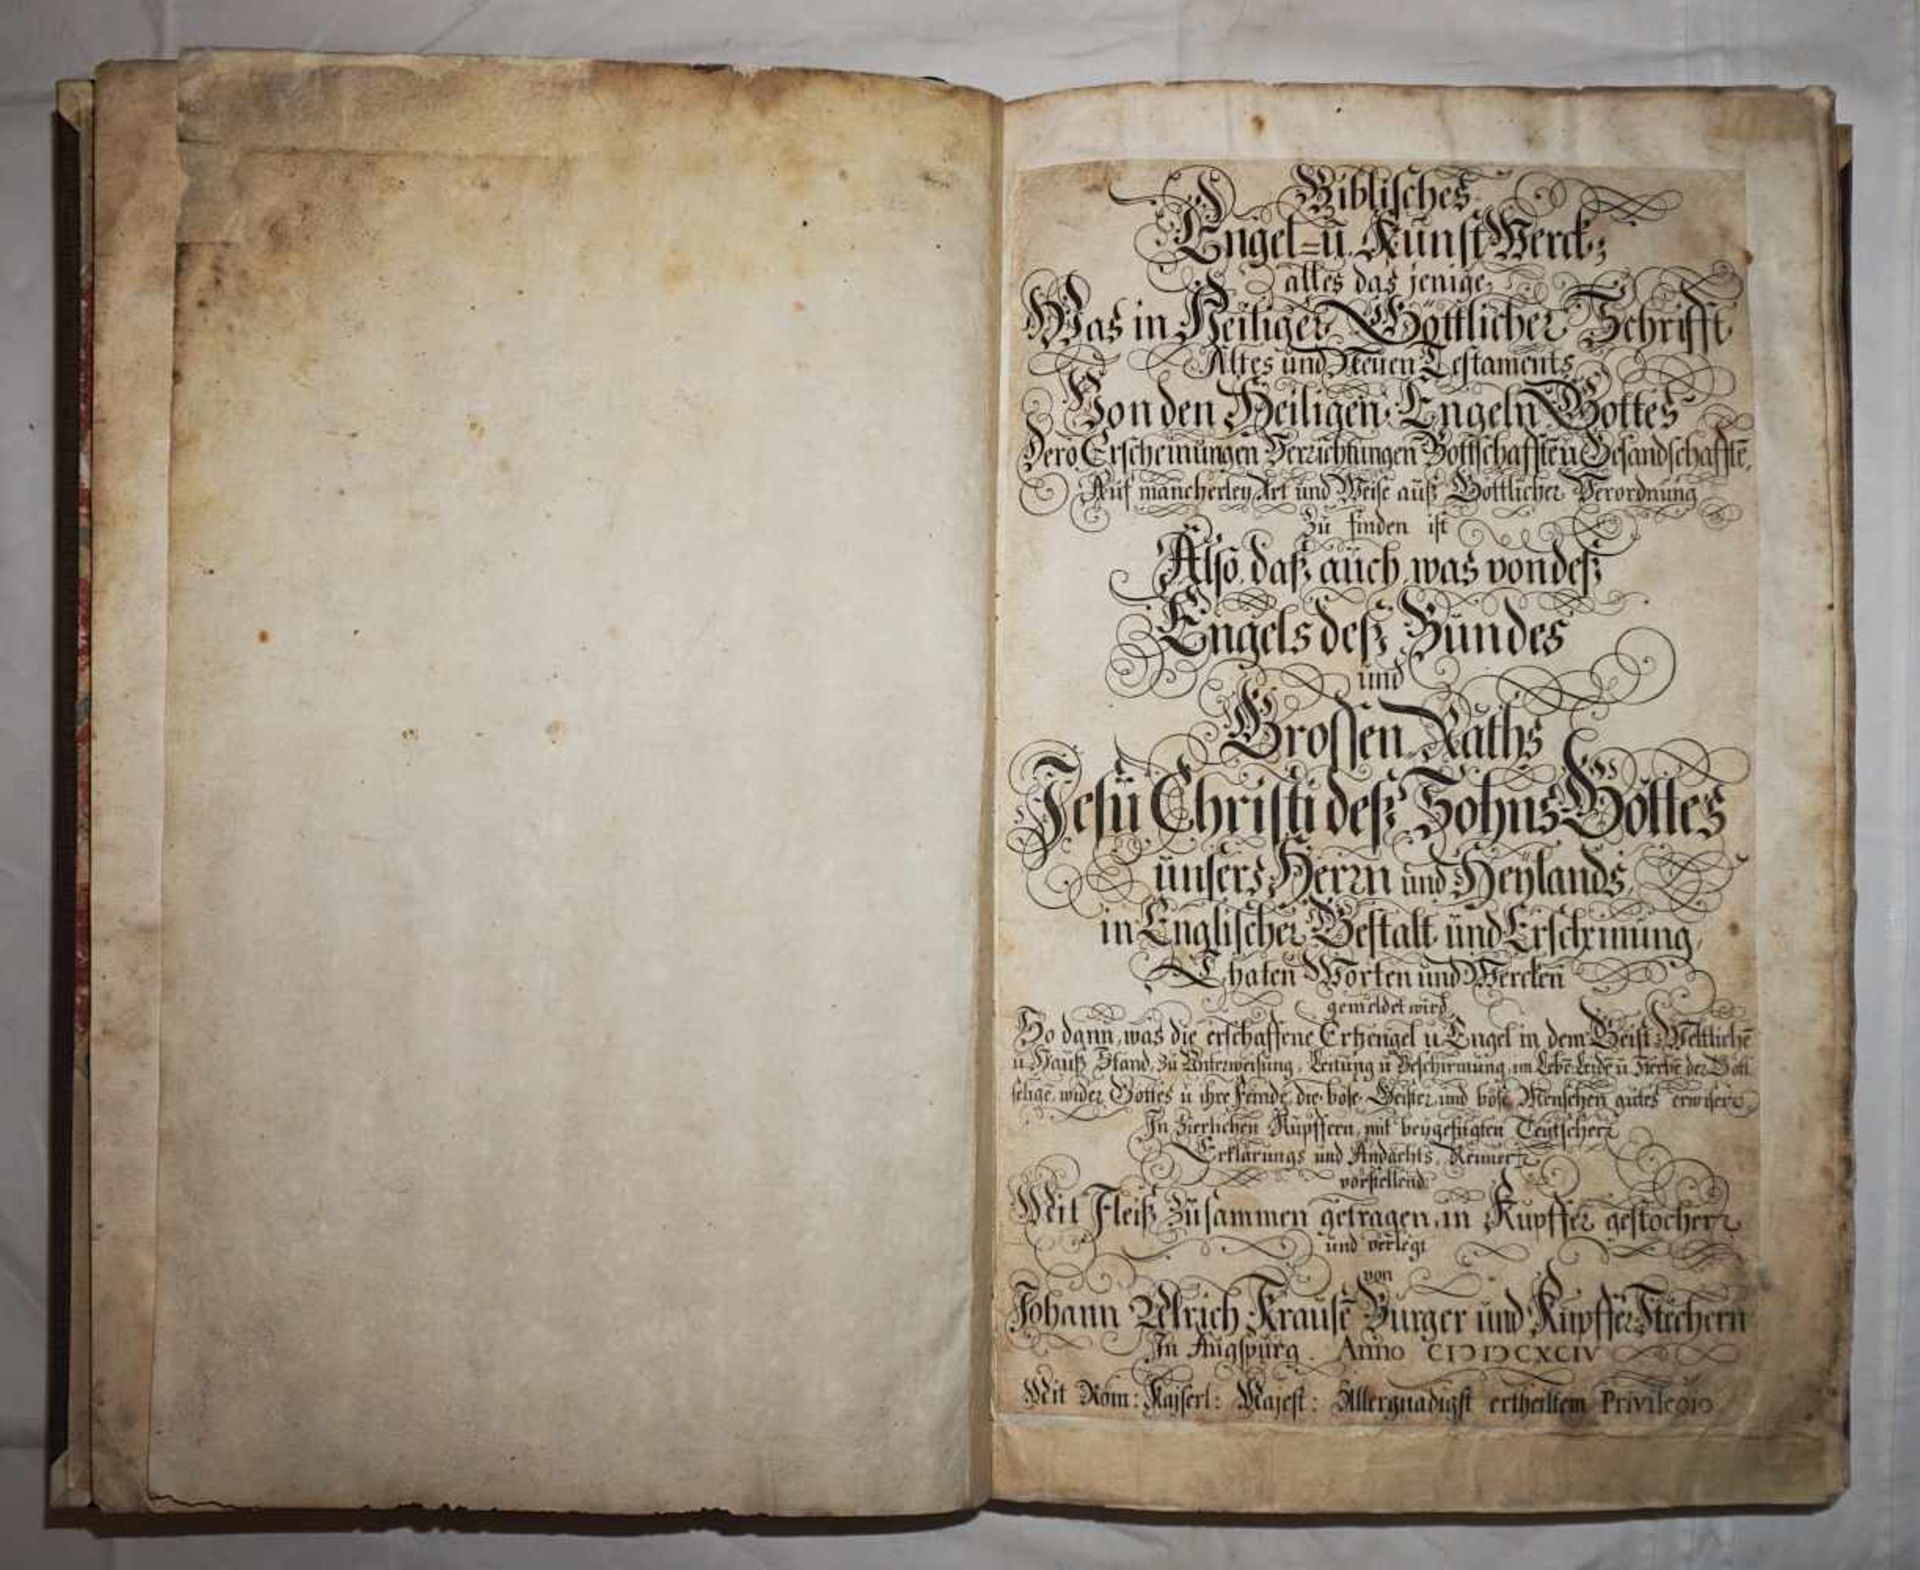 Biblisches
Engel= ū. Kunst Werck;
alles das jenige,
Was in Heiliger Göttlicher Schrifft
Altes und Neuen Testaments
Von den Heiligen Engeln Gottes
Dero Erscheinungen Verrichtungen Bottschafften Gesandschaffte,
Auf mancherley Art und Weise auß Göttlicher Verordnung
Zu finden ist
Also, daß auch, was von deß
Engels deß Bundes
und
Grossen Raths
Jesu Christi deß Sohns Gottes
unsers Herrn und Heylands,
in Englischer Gestalt und Erscheinung,
Thaten Worten und Wercken
gemeldet wird,
So dann, was die erschaffene Ertzengel u Engel in dem Geist= Weltlichē
u Hauß Stand, zu Unterweisung, Leitung u Beschirmung, im Lebē Leidē u Sterbē der Gott
selige, wider Gottes u ihre Feinde, die böse Geister, und böse Menschen gutes erwisen,
In zierlichen Kupffern, mit beygefügten Teutschen
Erklärungs und Andachts, Reimen
vorstellend.
Mit Fleiß zusammen getragen, in Kupffer gestochen
und verlegt
von
Johann Ulrich Krausē Burger und Kupffer Stechern
In Augspurg. Anno CIƆ IƆCXCIV
Mit Röm: Kaiserl: Majest: Allergnädigst ertheiltem Privilegio.